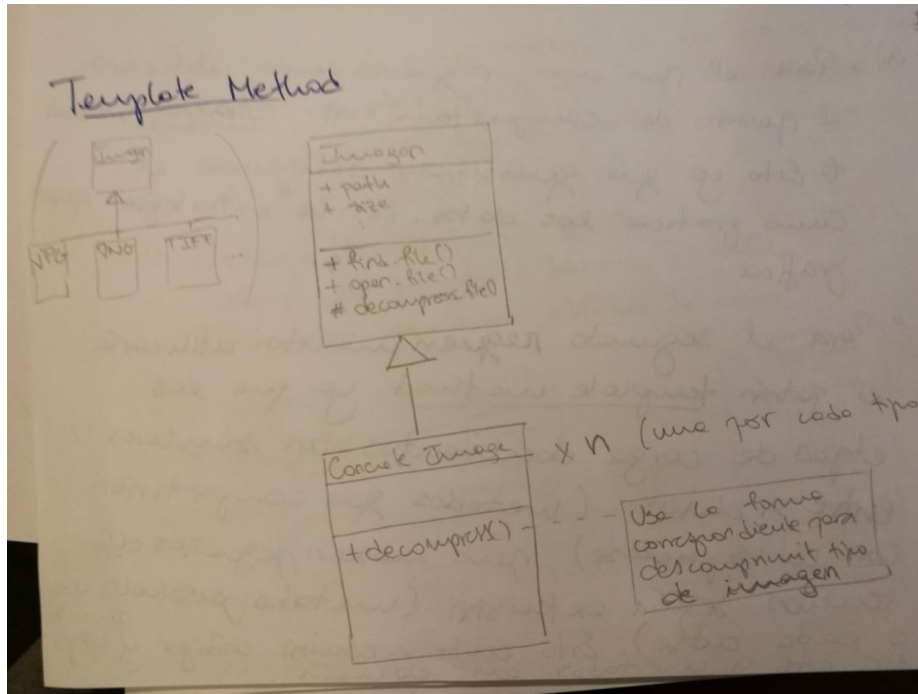 Template Method
Imagen
JPEG
PNG
TIFF
...
Imagen
+ path
+ size
+ find_file()
+ open_file()
# decompress_file()
Concrete Image
x n (una por cada tipo
+ decompress()
Use la forma
correspondiente para
descomprimir tipo
de imagen